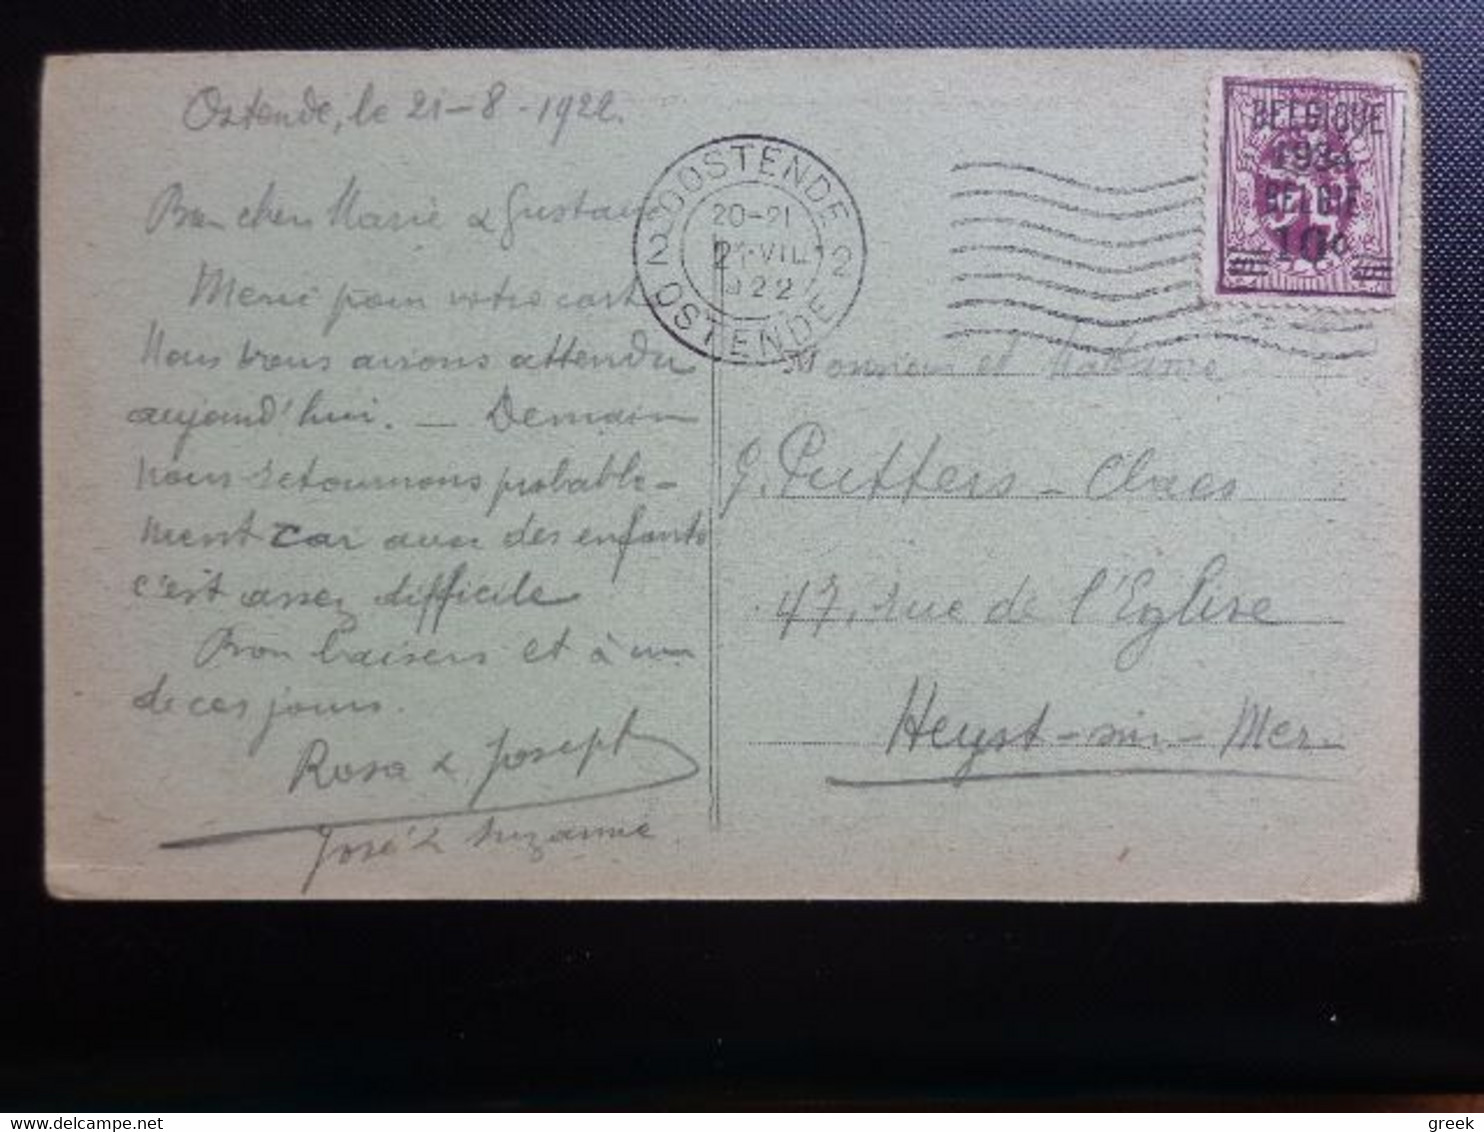 Ostende, le 21-8-1922.
Bien chers Marie & Gustave
Merci pour votre carte
Nous vous avions attendu
aujourd'hui. — Demain
nous retournons probable-
ment car avec des enfants
c'est assez difficile
Bon baisers et à un
de ces jours.
Rosa & Joseph
José & Suzanne
OOSTENDE
20-21
VIII
1922
2 2
OSTENDE
BELGIQUE
1934
BELGIE
10c
Monsieur et Madame
G. Putters - Claes
47, rue de l'Eglise
Heyst-sur-Mer
greek
delcampe.net